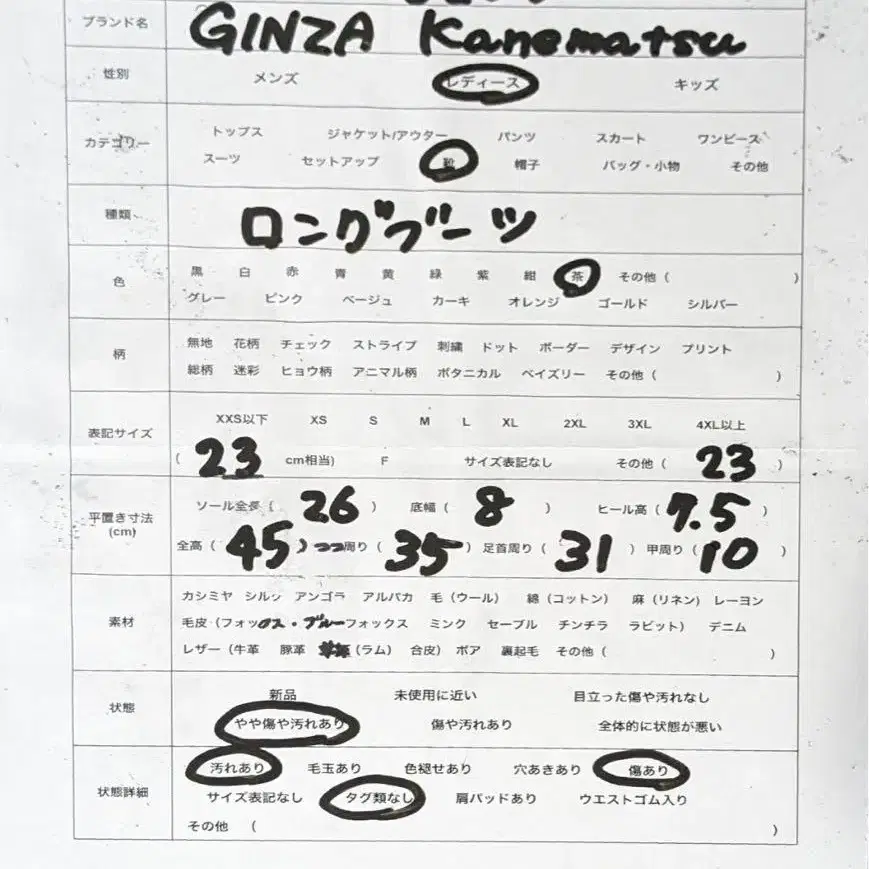 ブランド名 GINZA Kanematsu
性別 メンズ レディース キッズ
カテゴリー トップス ジャケット/アウター パンツ スカート ワンピース
スーツ セットアップ 靴 帽子 バッグ・小物 その他
種類 ロングブーツ
色 黒 白 赤 青 黄 緑 紫 紺 茶 その他 ( )
グレー ピンク ベージュ カーキ オレンジ ゴールド シルバー
柄 無地 花柄 チェック ストライプ 刺繍 ドット ボーダー デザイン プリント
総柄 迷彩 ヒョウ柄 アニマル柄 ボタニカル ペイズリー その他 ( )
表記サイズ XXS以下 XS S M L XL 2XL 3XL 4XL以上
( 23 cm相当) F サイズ表記なし その他 ( 23 )
平置き寸法 (cm) ソール全長 ( 26 ) 底幅 ( 8 ) ヒール高 ( 7.5 )
全高 ( 45 ) 周り ( 35 ) 足首周り ( 31 ) 甲周り ( 10 )
素材 カシミヤ シルク アンゴラ アルパカ 毛 (ウール) 綿 (コットン) 麻 (リネン) レーヨン
毛皮 (フォックス・ブルーフォックス ミンク セーブル チンチラ ラビット) デニム
レザー (牛革 豚革 (ラム) 合皮) ボア 裏起毛 その他 ( )
状態 新品 未使用に近い 目立った傷や汚れなし
やや傷や汚れあり 傷や汚れあり 全体的に状態が悪い
状態詳細 汚れあり 毛玉あり 色褪せあり 穴あきあり 傷あり
サイズ表記なし タグ類なし 肩パッドあり ウエストゴム入り
その他 ( )